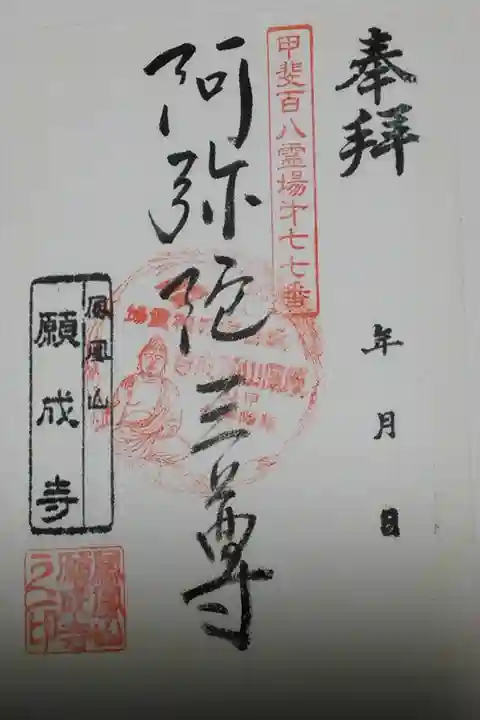 奉拝
年 月 日
甲斐百八霊場第七七番
阿弥陀三尊
鳳凰山
願成寺